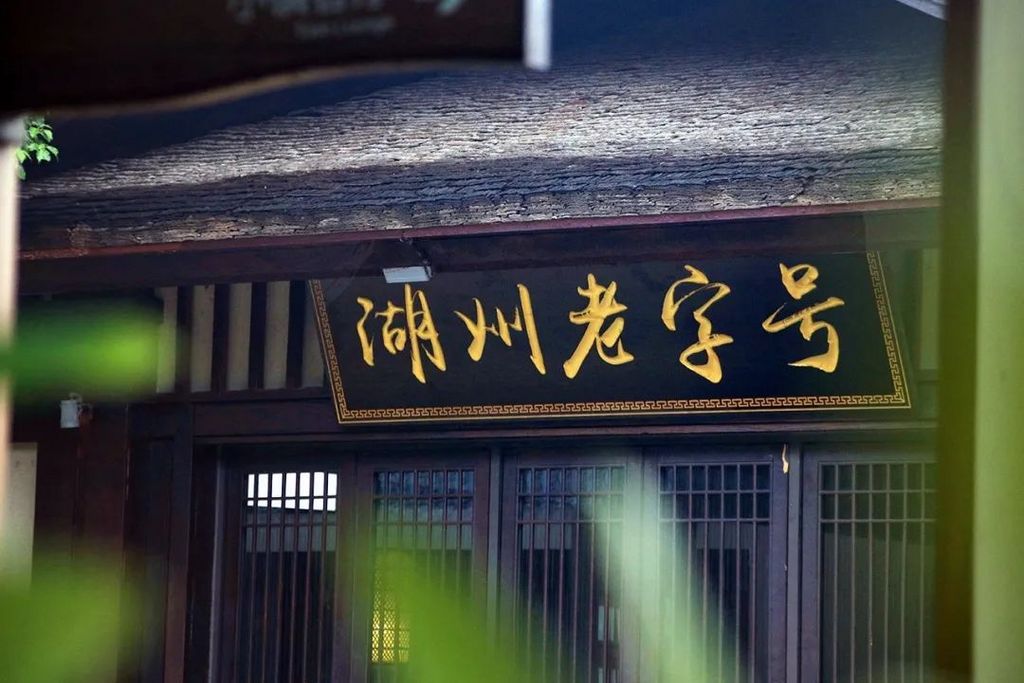 湖州老字号